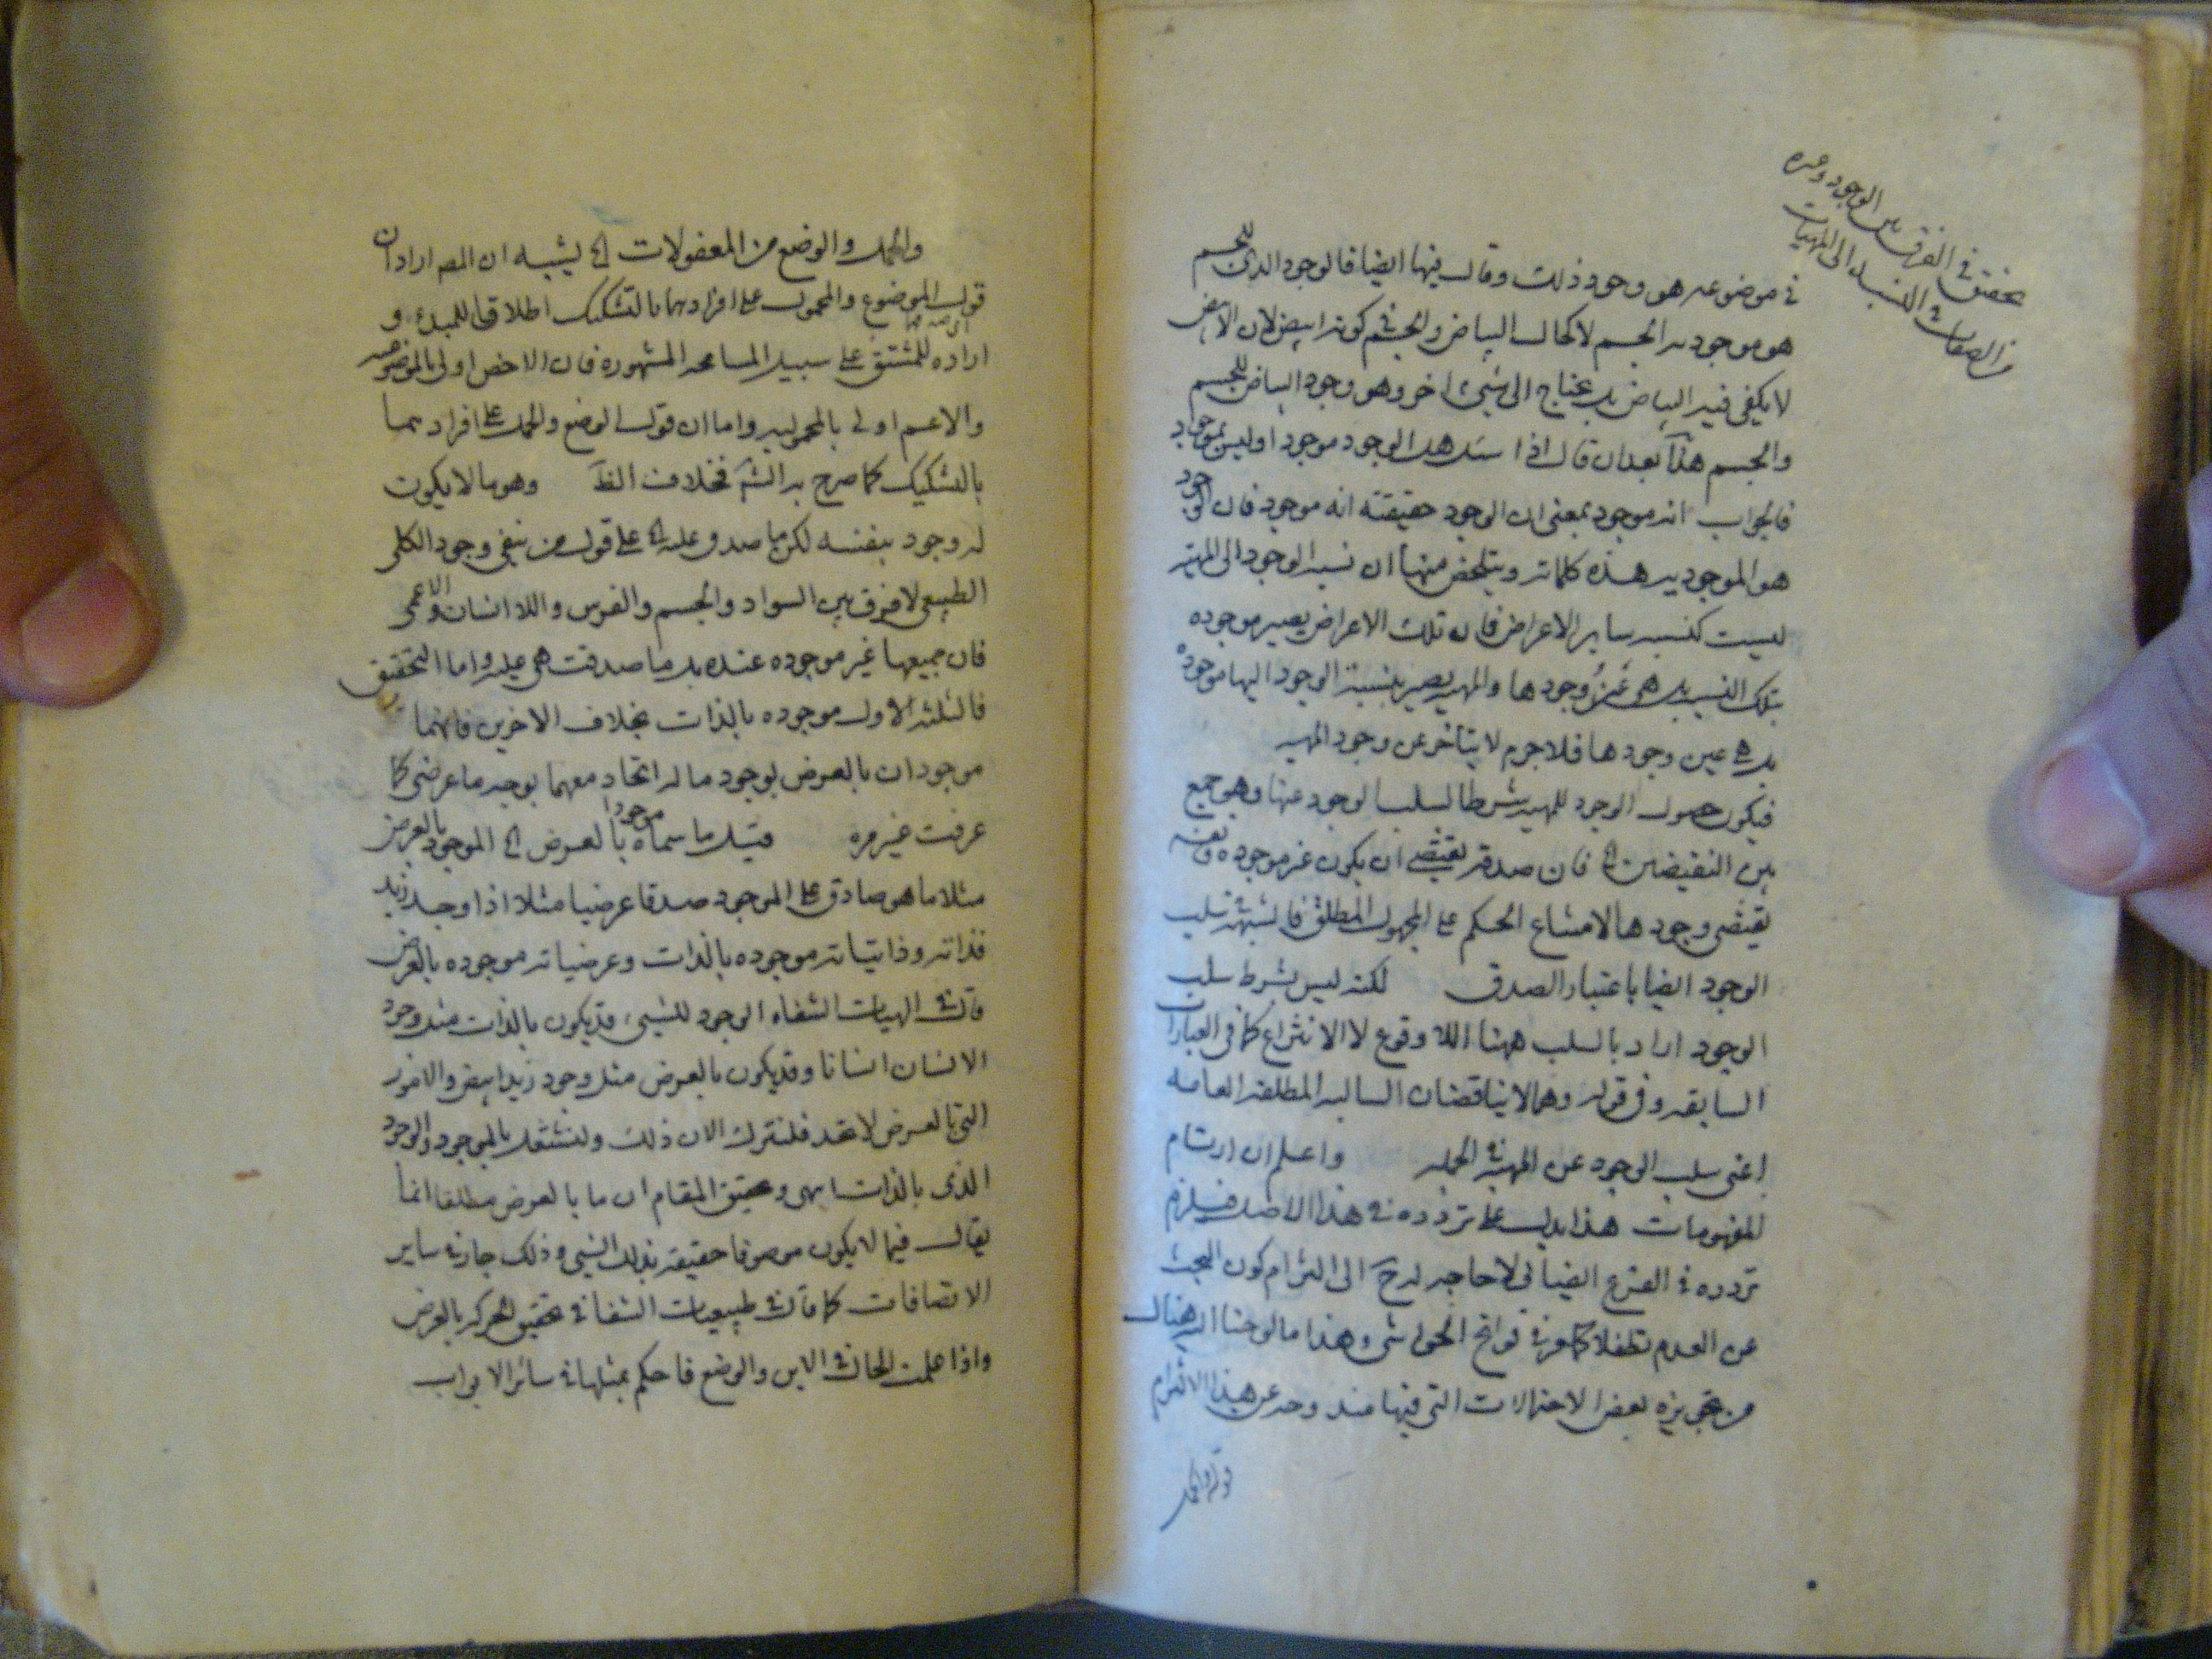 تحقيق في الفرق بين الوجود وغيره
من الصفات في النسبة الى المهيات
في موضوعه هو وجود ذلك وقال فيها ايضا فالوجود الذي للجسم
هو موجوديه الجسم لا كحال البياض والجسم في كونه ابيض لان الابيض
لا يكفي فيه البياض بل يحتاج الى شيء اخر وهو وجود البياض للجسم
والجسم هذا بعد ان قال اذا سئل هل الوجود موجود او ليس بموجود
فالجواب انه موجود بمعنى ان الوجود حقيقته انه موجود فان الوجود
هو الموجوديه هذه كلماته ويتلخص منها ان نسبه الوجود الى المهيه
ليست كنسبه ساير الاعراض فان تلك الاعراض يصير موجوده
بتلك النسبه بل هي وجودها والمهيه يصير بنسبة الوجود اليها موجوده
بل هي عين وجودها فلا جرم لا يتاخر عن وجود المهيه
فيكون حصول الوجود للمهيه بشرط السلب الوجود عنها وهو جمع
بين النقيضين الخ فان صدقه يقتضي ان يكون غير موجوده ونفسه
يقتضي وجودها لامتناع الحكم على المجهول المطلق فالشبهة سلب
الوجود ايضا باعتبار الصدق لكنه ليس بشرط سلب
الوجود اراد بالسلب ههنا اللا وقوع لا الانتزاع كما في العبارات
السابقه وفي قوله وهما لا يناقضان السالبه المطلقه العامه
اعني سلب الوجود عن المهيه في الجمله واعلم ان ارتسام
المفهومات هذا يدل على تردده في هذا الاصل فيلزم
تردده في الفرع ايضا فلا حاجه له ح الى التزام كون البحث
عن العدم تطفلا كما مر في فواتح الحواشي وهذا ما لوحنا اليه هناك
من تجويزه بعض الاحتمالات التي فيها مندوحه عن هذا الالتزام
قوله والحمل
والحمل والوضع من المعقولات الخ يشبه ان المصـ اراد ان
قول الموضوع والمحمول على افرادهما بالتشكيك اطلاقا للمبدء و
اراده للمشتق على سبيل المسامحه المشهوره فان الاخص اولى بالموضوعيه
والاعم اولى بالمحموليه واما ان قول الوضع والحمل على افرادهما
بالتشكيك كما صرح به الش فخلاف الظ وهو ما لا يكون
له وجود بنفسه لكن ما صدق عليه الخ على قول من ينفي وجود الكلي
الطبيعي لا فرق بين السواد والجسم والفرس واللا انسان والاعمى
فان جميعها غير موجوده عنده بل ما صدقت هي عليه واما التحقيق
فالثلثه الاول موجوده بالذات بخلاف الاخرين فانهما
موجودان بالعرض بوجود ما له اتحاد معهما بوجه ما عرضي كما
عرفت غير مره قيل ما سماه موجودا بالعرض الخ الموجود بالعرض
مثلا ما هو صادق على الموجود صدقا عرضيا مثلا اذا وجد زيد
فذاته وذاتياته موجوده بالذات وعرضياته موجوده بالعرض
قال في الهيات الشفاء الوجود للشيء قد يكون بالذات مثل وجود
الانسان انسانا وقد يكون بالعرض مثل وجود زيد ابيض والامور
التي بالعرض لا تحد فلنترك الان ذلك ولنشتغل بالموجود والوجود
الذي بالذات انتهى وتحقيق المقام ان ما بالعرض مطلقا انما
يقال فيما لا يكون موصوفا حقيقه بذلك الشيء وذلك جار في ساير
الاتصافات كما قال في طبيعيات الشفا في تحقيق الحركه بالعرض
واذا علمت الحال في الاين والوضع فاحكم بمثلها في سائر الابواب